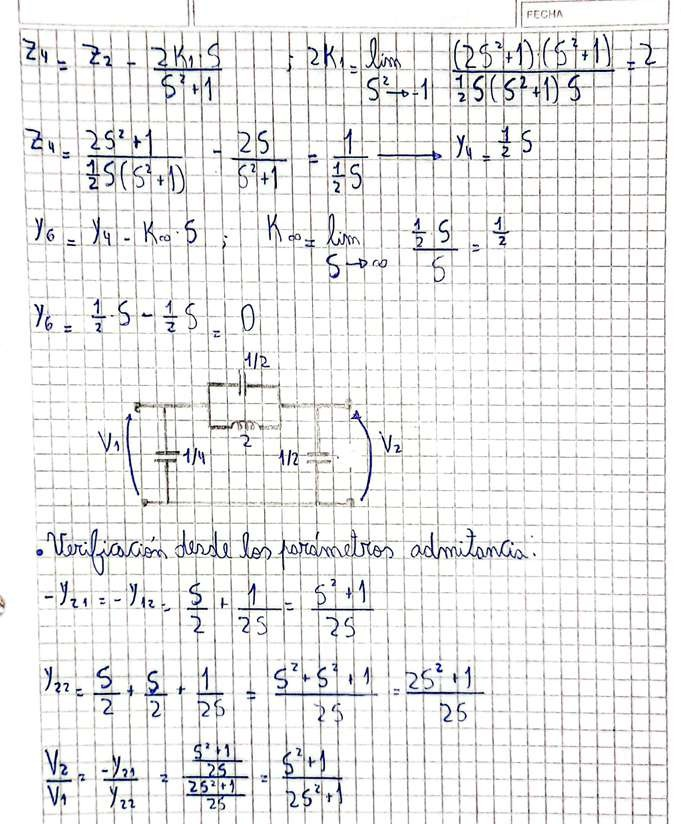 FECHA
Z₄ = Z₂ - 2K₁·S / (S²+1) ; 2K₁ = lim S²→-1 (2S²+1)·(S²+1) / (½S(S²+1)S) = 2
Z₄ = (2S²+1) / (½S(S²+1)) - 2S / (S²+1) = 1 / (½S) → Y₄ = ½S
Y₆ = Y₄ - K∞·S ; K∞ = lim S→∞ (½·S) / S = ½
Y₆ = ½·S - ½S = 0
1/2
2
V₁
1/4
1/2
V₂
• Verificación desde los parámetros admitancia:
-Y₂₁ = -Y₁₂ = S/2 + 1/2S = (S²+1) / 2S
Y₂₂ = S/2 + S/2 + 1/2S = (S²+S²+1) / 2S = (2S²+1) / 2S
V₂/V₁ = -Y₂₁/Y₂₂ = ((S²+1)/2S) / ((2S²+1)/2S) = (S²+1) / (2S²+1)